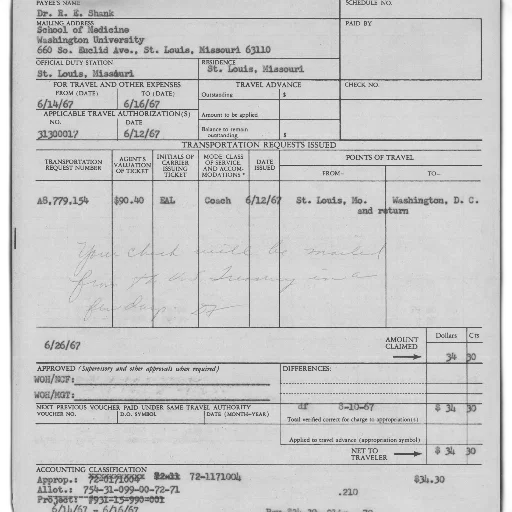 PAYEE'S NAME
SCHEDULE NO.
Dr. R. E. Shank
MAILING ADDRESS
PAID BY
School of Medicine
Washington University
660 So. Euclid Ave., St. Louis, Missouri 63110
OFFICIAL DUTY STATION
RESIDENCE
St. Louis, Missouri
St. Louis, Missouri
FOR TRAVEL AND OTHER EXPENSES
TRAVEL ADVANCE
CHECK NO.
FROM (DATE)
TO (DATE)
Outstanding $
6/14/67
6/16/67
APPLICABLE TRAVEL AUTHORIZATION(S)
Amount to be applied
NO.
DATE
31300017
6/12/67
Balance to remain outstanding $
TRANSPORTATION REQUESTS ISSUED
TRANSPORTATION REQUEST NUMBER
AGENT'S VALUATION OF TICKET
INITIALS OF CARRIER ISSUING TICKET
MODE, CLASS OF SERVICE, AND ACCOM- MODATIONS *
DATE ISSUED
POINTS OF TRAVEL
FROM—
TO—
A8,779,154 $90.40 EAL Coach 6/12/67 St. Louis, Mo. Washington, D. C.
and return
Your check will be mailed
from the U.S Treasury in a
few days.
6/26/67
AMOUNT CLAIMED
Dollars Cts
34 30
APPROVED (Supervisory and other approvals when required)
DIFFERENCES:
WOH/NCF:
WOH/MGT:
NEXT PREVIOUS VOUCHER PAID UNDER SAME TRAVEL AUTHORITY
VOUCHER NO.
D.O. SYMBOL
DATE (MONTH-YEAR)
df 8-10-67 $ 34 30
Total verified correct for charge to appropriation(s)
Applied to travel advance (appropriation symbol)
NET TO TRAVELER $ 34 30
ACCOUNTING CLASSIFICATION
Approp.: 72-0171004 72-11 72-1171004 $34.30
Allot.: 754-31-099-00-72-71 .210
Project: 931-15-990-001
6/14/67 - 6/16/67